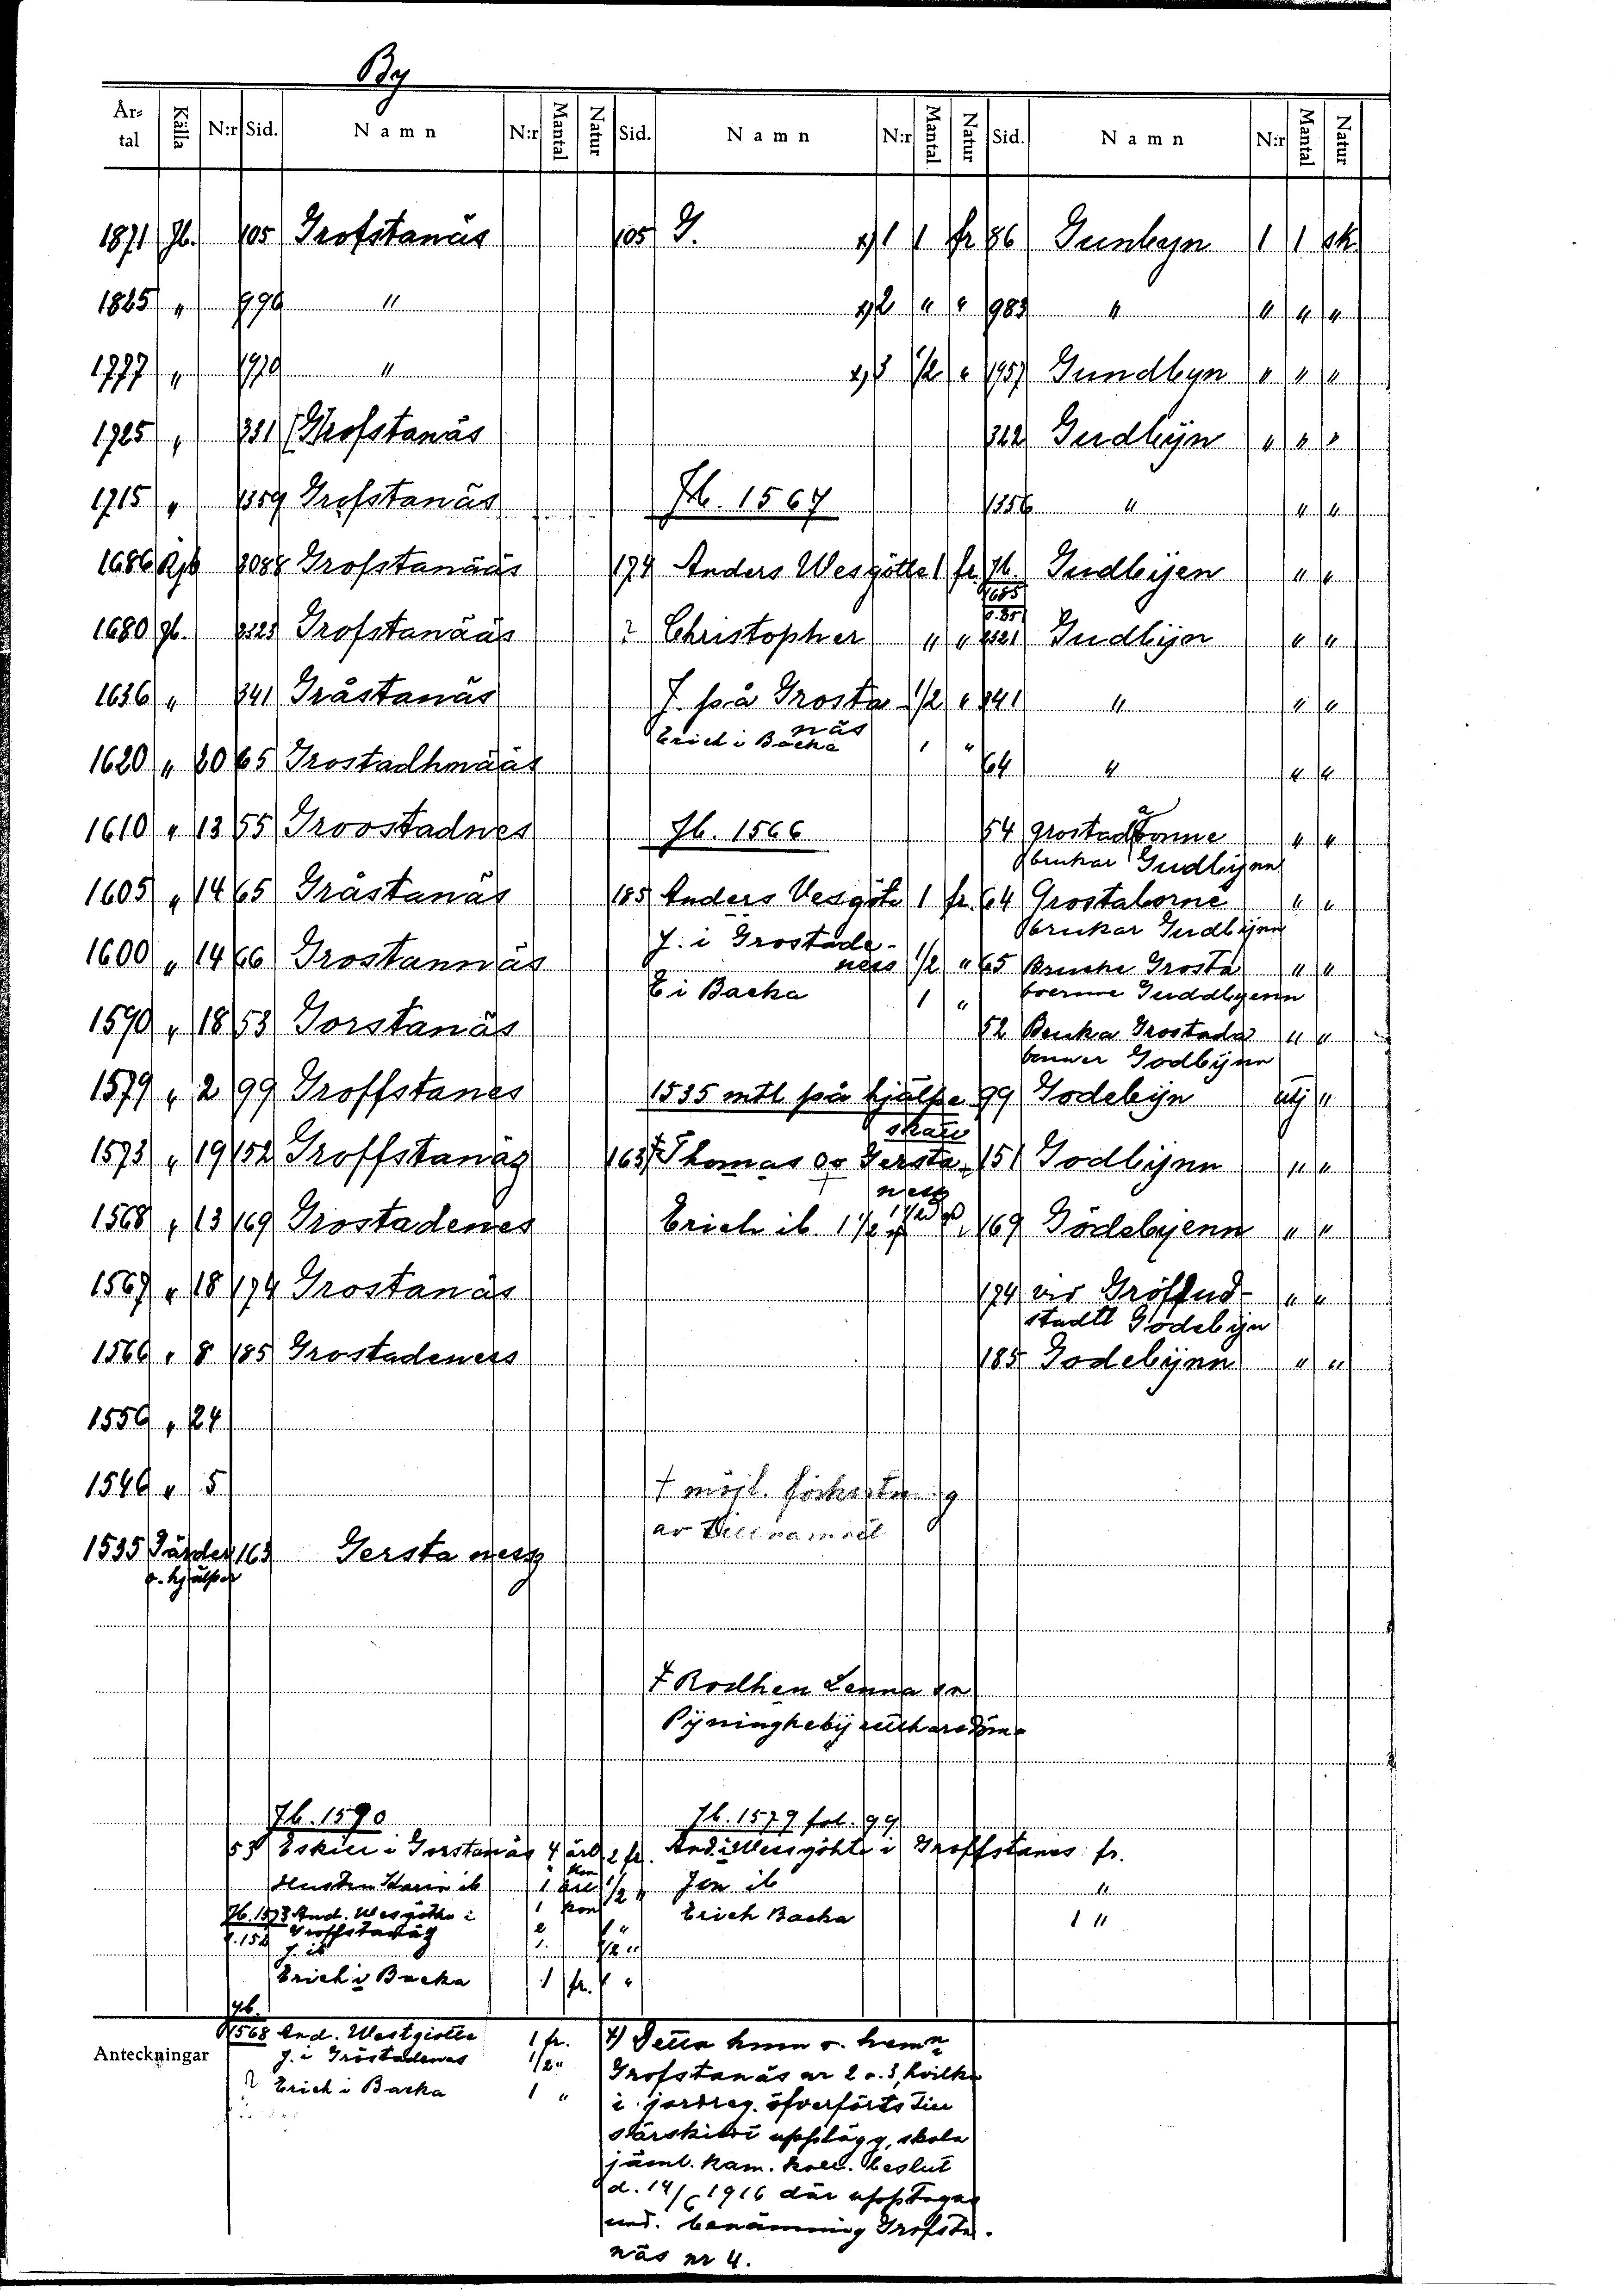 By
År-tal Källa N:r Sid. Namn N:r Mantal Natur Sid. Namn N:r Mantal Natur Sid. Namn N:r Mantal Natur
1871 Jb. 105 Grofstanäs 105 G. x) 1 1 fr 86 Gunbyn 1 1 sk
1825 " 990 " x) 2 " " 983 " " " "
1777 " 1970 " x) 3 1/2 " 1957 Gundbyn " " "
1725 " 331 Grofstanäs 322 Gudbyn " " "
1715 " 1359 Grofstanäs Jb. 1567 1356 " " "
1686 Rjb 2088 Grofstanääs 174 Anders Wesgötte 1 fr. Jb. Gudbyen " "
1685
1680 Jb. 2323 Grofstanääs ? Christopher " " 2321 Gudbyn " "
1636 " 341 Gråstanäs J. på Grosta- 1/2 " 341 " " "
näs
Erich i Backa 1 "
1620 " 20 65 Grostadhnääs 64 " " "
1610 " 13 55 Groostadnes Jb. 1566 54 grostadbonne " "
brukar Gudbynn
1605 " 14 65 Gråstanäs 185 Anders Vesgöte 1 fr. 64 Grostaborne " "
brukar Gudbynn
1600 " 14 66 Grostannäs J. i Grostade-
ness 1/2 " 65 Bruche Grosta " "
E i Backa 1 " boerne Guddbyenn
1590 " 18 53 Gorstanäs 52 Bruka Grostada " "
bonner Godbynn
1579 " 2 99 Groffstanes 1535 mtl på hjälpe 99 Godebyn utj "
skatt
1573 " 19 152 Groffstanäs 163 Thomas oo Gersta- 151 Godbynn " "
nesz
1568 " 13 169 Grostadenes Erich ib. 1 1/2 169 Gödebyenn " "
1567 " 18 174 Grostanäs 174 vid Gröffud- " "
stadtt Godebyn
1566 " 8 185 Grostadeness 185 Godebynn " "
1550 " 24
1546 " 5 † möjl. förkortning
av tillnamnet
1535 Gärder 163 Gerstanesz
o. hjälper
‡ Rodhen Lenna sn
Pyningheby
Jb. 1590 Jb. 1579 fol. 99
53 Eskill i Gorstanäs 4 årl. 2 fr. And. Wesgöhte i Groffstanes fr.
Hustru Karin ib 1 årl 1/2 " Jon ib "
Jb. 1573 And. Wesgöthe i 1 kon Erich Backa 1 "
f. 152 Groffstanäs 2 1 "
J. ib 1. 1/2 "
Erich i Backa 1 fr. 1 "
Jb.
1568 And. Westgiotte 1 fr. x) Detta hmn o. hemn
Anteckningar J. i Gröstadenes 1/2 " Grofstanäs nr 2 o. 3, hvilka
? Erich i Backa 1 " i jordreg. öfverförts till
särskildt upplägg, skola
jäml. kam. koll. beslut
d. 14/6 1916 där upptagas
und. benämning Grofsta-
näs nr 4.